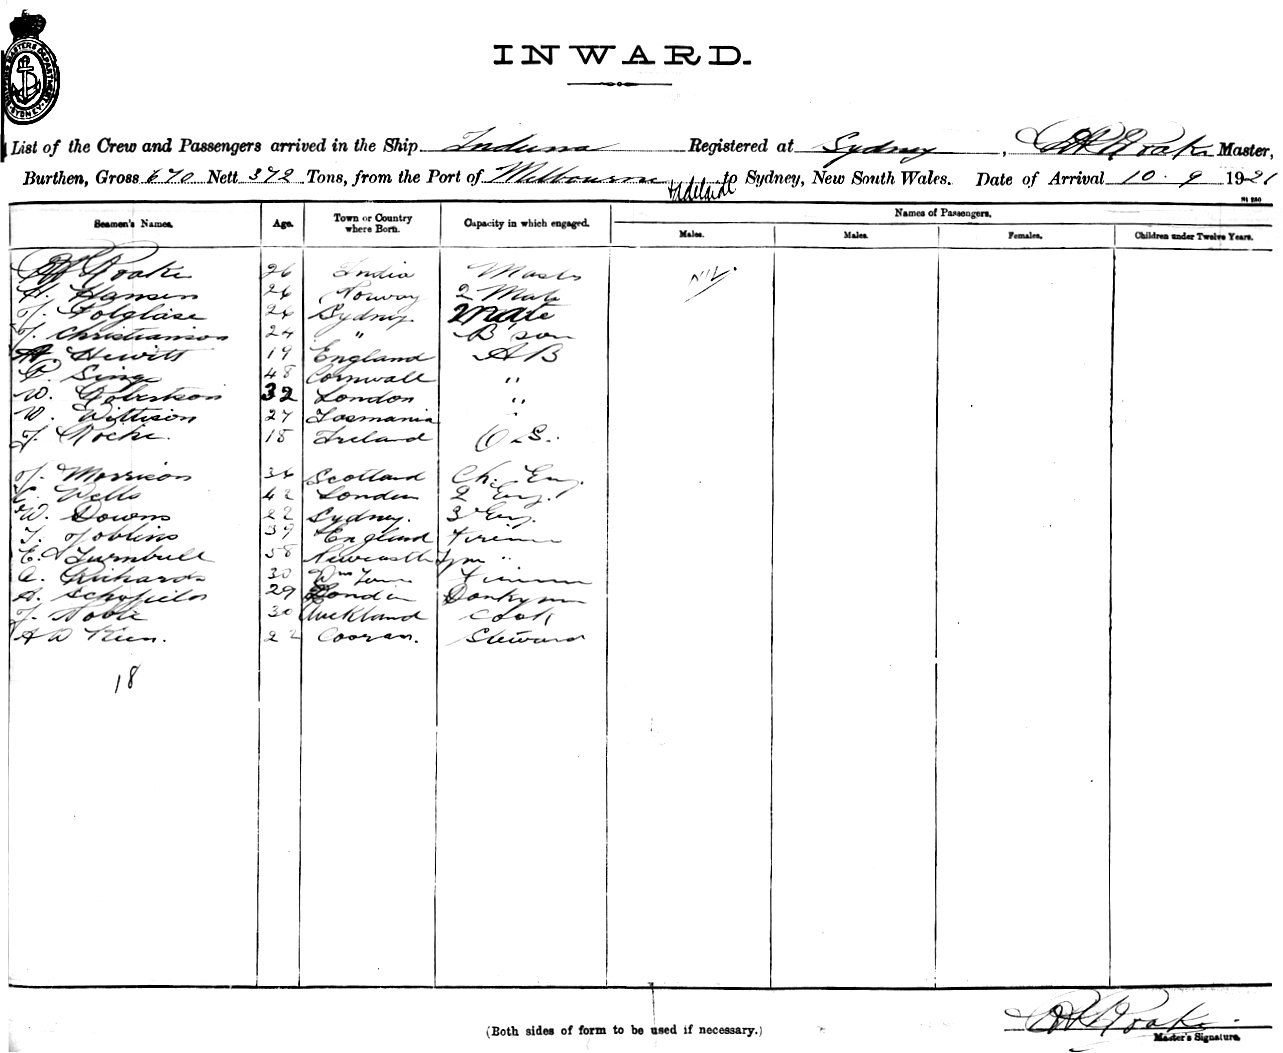 INWARD.
List of the Crew and Passengers arrived in the Ship Induna Registered at Sydney, Roake Master,
Burthen, Gross 670 Nett 372 Tons, from the Port of Melbourne Adelaide to Sydney, New South Wales. Date of Arrival 10. 9 1921
Names of Passengers.
Seamen's Names. Age. Town or Country where Born. Capacity in which engaged. Males. Males. Females. Children under Twelve Years.
Roake 26 India Master NIL.
H. Hansen 26 Norway 2 Mate
J. Polglase 26 Sydney Mate
J. Christianson 24 " B'son
Hewitt 19 England AB
48 Cornwall "
W. Robertson 32 London "
W. Wittison 27 Tasmania "
J. Roche. 18 Ireland O.S.
J. Morrison 36 Scotland Ch. Eng.
C. Wells 42 London 2 Eng.
W. Downs 22 Sydney. 3 Eng.
Joblins 39 England Firemn
E. Turnbull 58 Newcastle Tyne "
Richards 30 Wm Town Firemn
A. Schofield 29 London Donkymn
J. Noble 30 Auckland Cook
22 Steward
18
(Both sides of form to be used if necessary.)
Roake
Master's Signature.